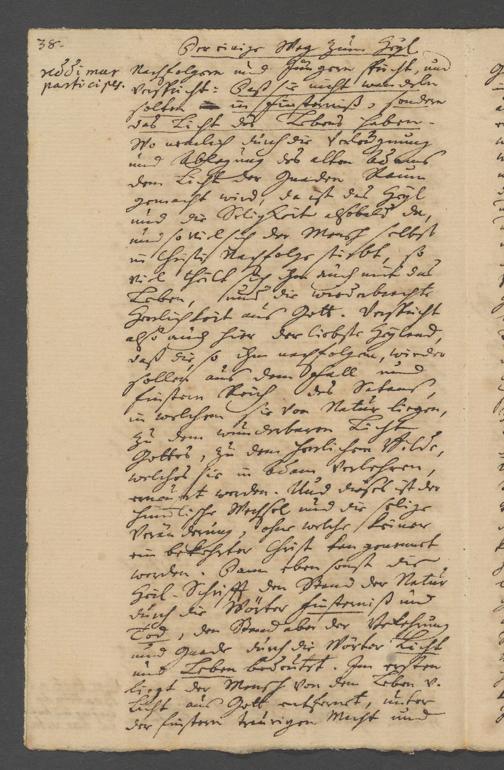 38.
Der einige Weg zum Heyl
reddimur
participes.
Nachfolgern und Jüngern Pflicht, und
verspricht: Daß sie nicht wandeln
solten in Finsterniß, sondern
das Licht des Lebens haben.
Wo nemlich durch die Verleugnung
und Ablegung des alten Adams
dem Licht der Gnaden Raum
gemacht wird, da ist das Heyl
und die Seligkeit alsobald da,
und so viel sich der Mensch selbst
in Christi Nachfolge stirbt, so
viel theilt sich ihm auch mit das
Leben, und die wiederbrachte
Herrlichkeit aus Gott. Verspricht
also auch hier der liebste Heyland,
daß die, so ihm nachfolgen, wieder
sollen aus dem Fall und
finstern Reich des Satans,
in welchem sie von Natur liegen,
zu dem wunderbaren Licht
Gottes, zu dem herrlichen Bilde,
welches sie in Adam verlohren,
erneuert werden. Und dieses ist der
himmlische Wechsel und die selige
Veränderung, ohne welche keiner
ein bekehrter Christ kan genennet
werden. Dann eben sonst die
Heil. Schrifft den Stand der Natur
durch die Wörter Finsterniß und
Tod, den Stand aber der Bekehrung
und Gnade durch die Wörter Licht
und Leben bedeutet. Im ersten
liegt der Mensch von dem Leben u.
Licht aus Gott entfernet, unter
der finstern traurigen Macht und